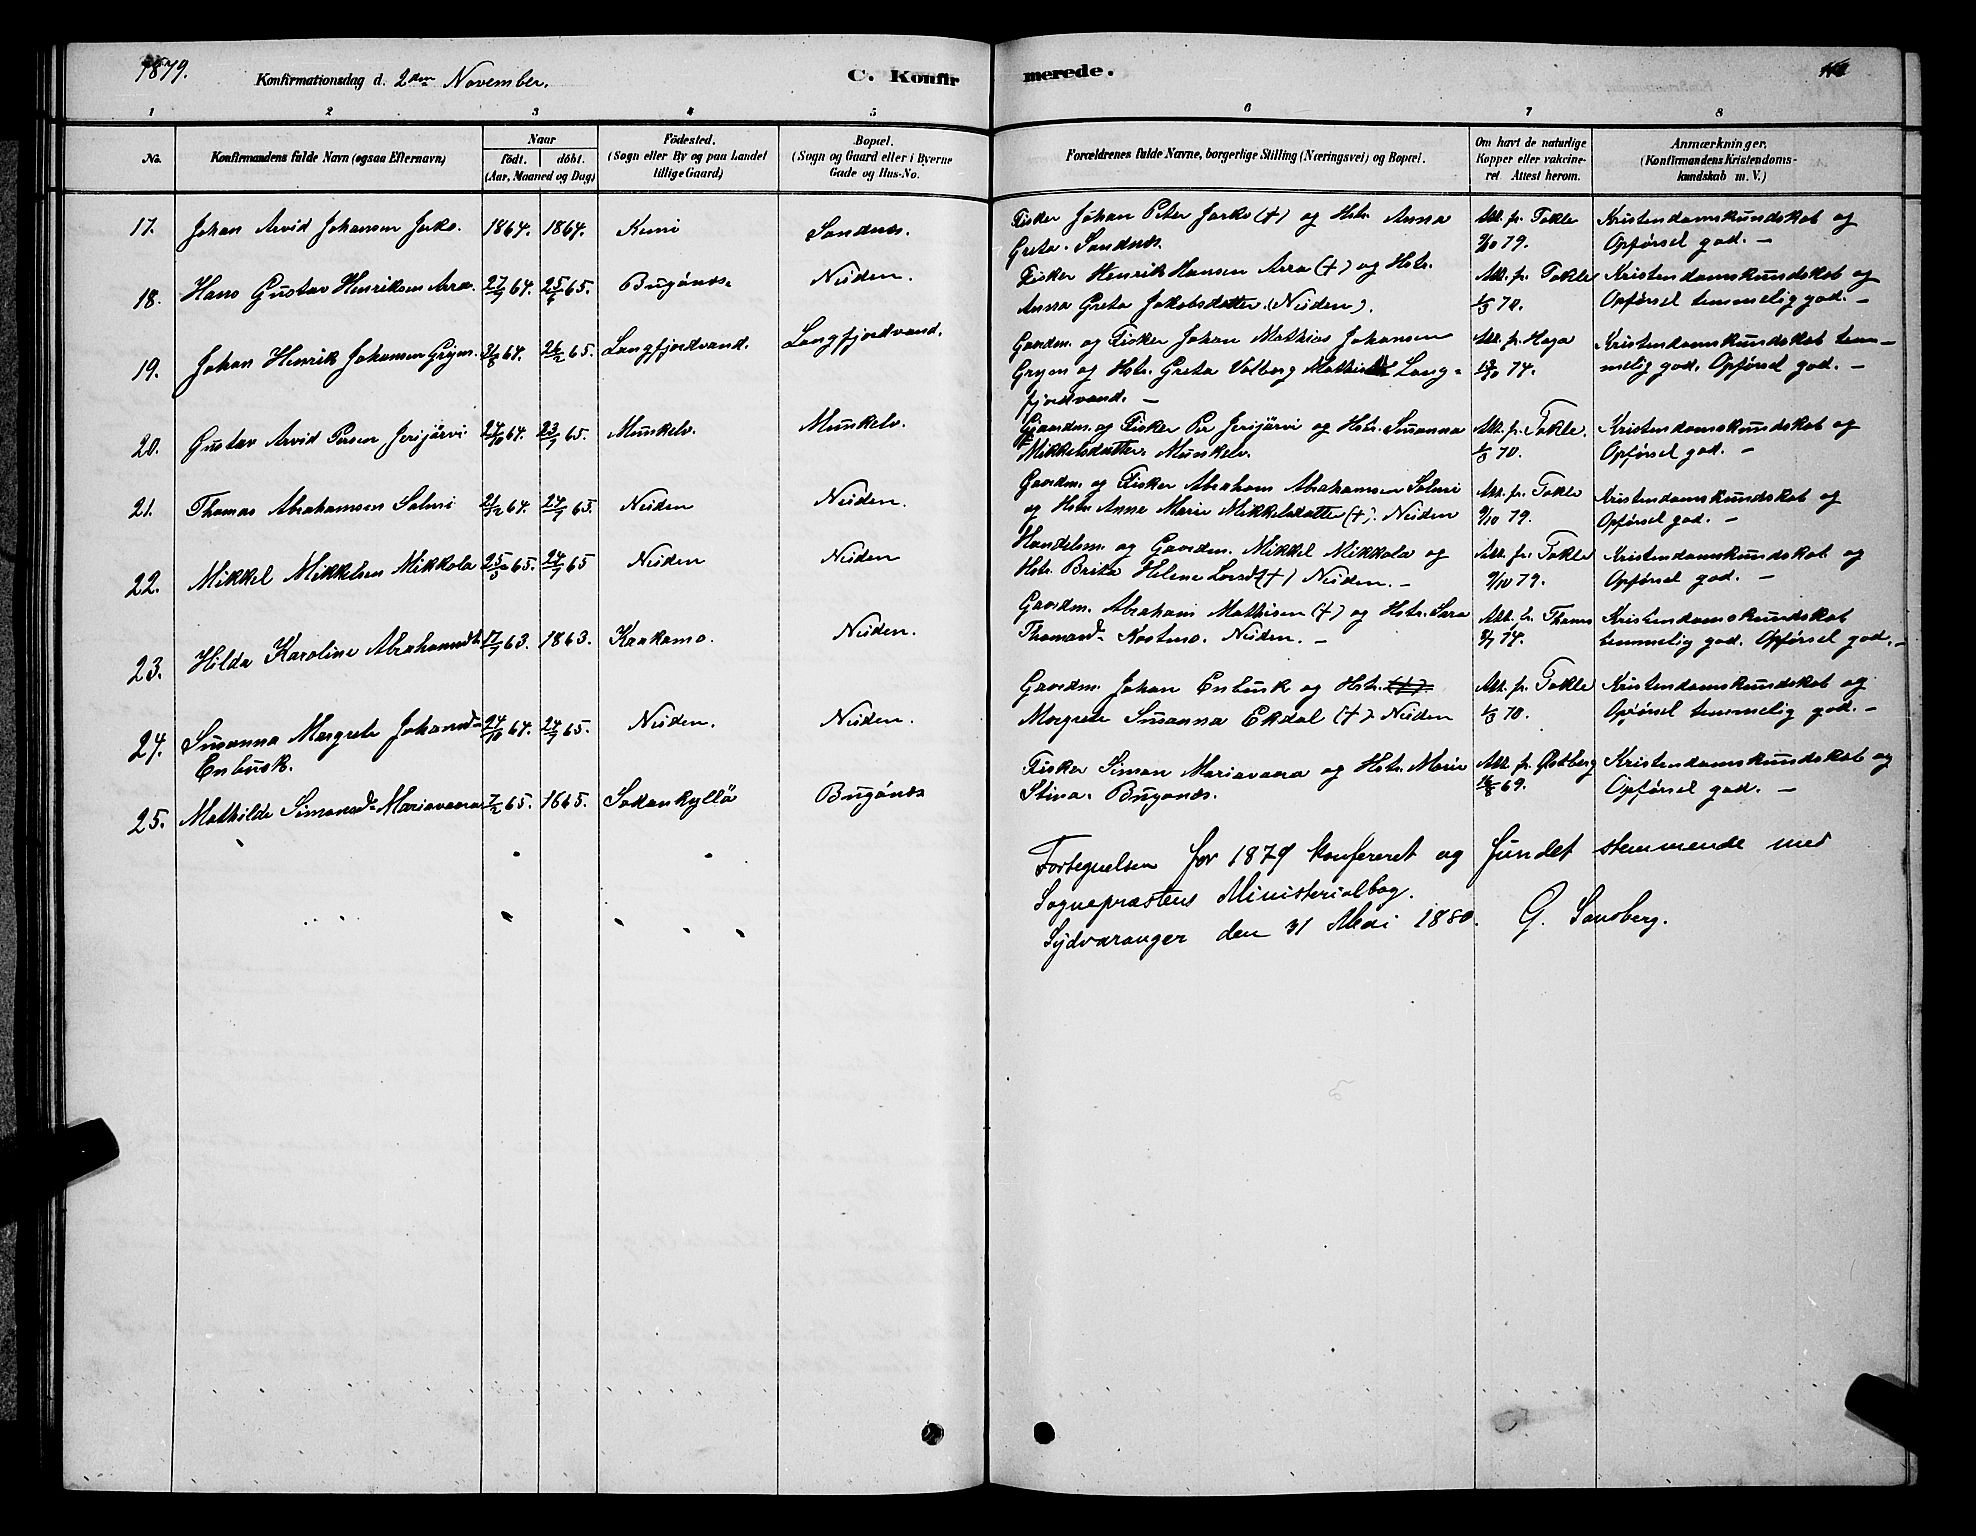 1879.
Konfirmationsdag d. 2den November.
C. Konfir
merede.
1 2 3 4 5 6 7 8
No.
Konfirmandens fulde Navn (ogsaa Efternavn)
Naar
födt. döbt.
(Aar, Maaned og Dag)
Födested.
(Sogn eller By og paa Landet
tillige Gaard)
Bopæl.
(Sogn og Gaard eller i Byerne
Gade og Hus-No.
Forældrenes fulde Navne, borgerlige Stilling (Næringsvei) og Bopæl.
Om havt de naturlige
Kopper eller vakcine-
ret Attest herom.
Anmærkninger.
(Konfirmandens Kristendoms-
kundskab m. V.)
17. Johan Arvid Johansen Jarko. 1864. 1864. Kemi Sandnes.
Fisker Johan Peter Jarko (+) og Hstr. Anna
Greta. Sandnes.
Att. fr. Tokle
79.
Kristendomskundskab og
Opførsel god. —
18. Hans Gustav Henriksen Arra. 27/9 64. 25/6 65. Bugönes. Neiden.
Fisker Henrik Hansen Arra (+) og Hstr.
Anna Greta Jakobsdatter. (Neiden).
Att. fr. Tokle
70.
Kristendomskundskab og
Opførsel temmelig god. —
19. Johan Henrik Johansen Gryen. 64. 26/2 65. Langfjordvand. Langfjordvand.
Gaardm. og Fisker Johan Mathias Johansen
Gryen og Hstr. Greta Volborg Lang-
fjordvand. —
Att. fr. Haga
74.
Kristendomskundskab tem-
melig god. Opførsel god. —
20. Gustav Arvid Persen Jerijärvi 24/10 64. 23/7 65. Munkelv. Munkelv.
Gaardm. og Fisker Per Jerijärvi og Hstr. Susanna
Mikkelsdatter. Munkelv.
Att. fr. Tokle.
70.
Kristendomskundskab og
Opførsel god. —
21. Thomas Abrahamsen Salmi 21/12 64. 24/7 65. Neiden Neiden.
Gaardm. og Fisker Abraham Abrahamsen Salmi
og Hstr. Anne Marie Mikkelsdatter (+). Neiden
Att. fr. Tokle
9/10 79.
Kristendomskundskab og
Opførsel god. —
22. Mikkel Mikkelsen Mikkola 25/5 65. 24/7 65 Neiden Neiden
Handelsm. og Gaardm. Mikkel Mikkola og
Hstr. Brita Helene Larsd (+) Neiden. —
Att. fr. Tokle
9/10 79.
Kristendomskundskab og
Opførsel god. —
23. Hilda Karoline Abrahamsdt. 17/7 63. 1863. Kaakamo. Neiden.
Gaardm. Abraham Mathisen (+) og Hstr. Sara
Thomasd- Kostmo. Neiden. —
Att. fr. Thams
74.
Kristendomskundskab
temmelig god. Opførsel god. —
24. Susanna Margrete Johansd- 24/10 64. 24/7 65. Neiden. Neiden.
Enbusk.
Gaardm. Johan Enbusk og Hstr. (+).
Margrete Susanna Ekdal (+) Neiden
Att. fr. Tokle
70.
Kristendomskundskab og
Opførsel temmelig god. —
25. Mathilde Simonsd- Mariavaara 7/2 65. 1665. Sodankyllä Bugönes
Fisker Simon Mariavaara og Hstr. Maria
Stina. Bugönes.
Att. fr. Østberg
69.
Kristendomskundskab og
Opførsel god. —
Fortegnelsen for 1879 konfereret og fundet stemmende med
Sognepræstens Ministerialbog.
Sydvaranger den 31 Mai 1880. G. Sandberg.